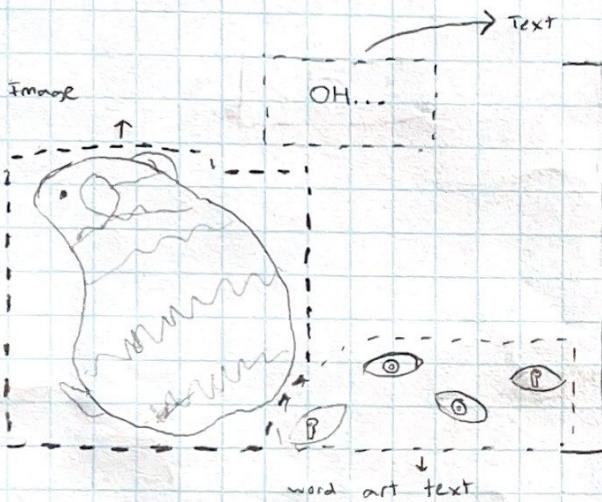 Text
OH...
Image
word art text